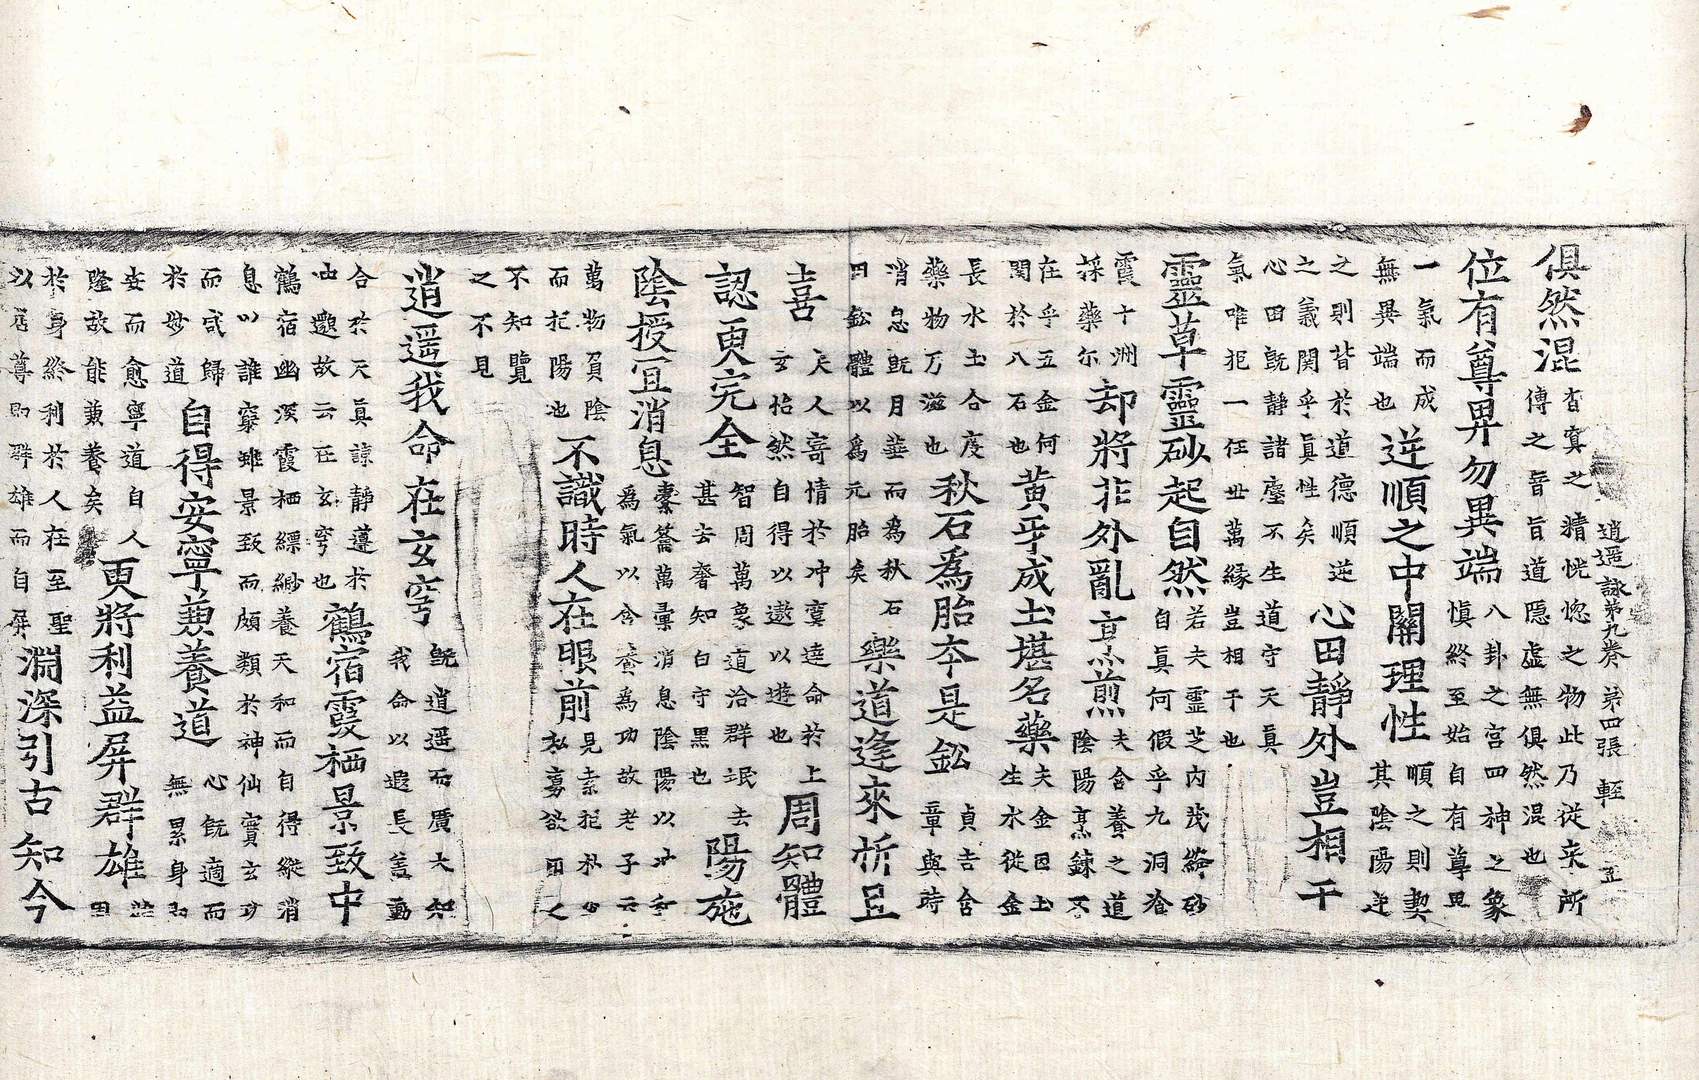 逍遥詠第九卷 第四張 輕
俱然混杳冥之精恍惚之物此乃從来所傳之音旨道隱虛無俱然混也
位有尊卑勿異端八卦之宫四神之象愼終至始自有尊卑
一氣而成無異端也逆順之中關理性順之則契其陰陽逆
之則背於道德順逆之義関乎真性矣心田靜外豈相干
心田旣靜諸塵不生道守天真氣唯抱一任世萬縁豈相干也
靈草靈砂起自然若夫靈芝内茂砂自真何假乎九洞湌
霞十洲採藥尔却將非外亂烹煎夫含養之道陰陽烹鍊不
在乎五金何関於八石也黄芽成土堪名藥夫金因土生水從金
長水土合度藥物万滋也秋石為胎夲是鈆貞吉含章與時
消息旣月華而為秋石因鈆體以為元胎矣樂道逢來祈且
喜夫人寄情於冲寞達命於上玄怡然自得以遨以遊也周知體
認更完全智周萬象道洽群氓去甚去奢知白守黑也陽施
陰授冝消息橐籥萬彙消息陰陽以冲為氣以含養為功故老子云
萬物負陰而抱陽也不識時人在眼前見素抱朴少私寡欲用之
不知覽之不見
逍遥我命在玄穹旣逍遥而廣大知我命以遐長言動
合於天真諒靜遵於冲邈故云在玄穹也鶴宿霞栖景致中
鶴宿幽溪霞栖縹緲養天和而自得縱消息以誰窮雖景致而頗類於神仙實玄功
而或歸於妙道自得安寧兼養道心旣適而無累身由
安而愈寧道自人隆故能兼養矣更將利益屏群雄益因
於身終利於人在至聖以居尊即群雄而自屏淵深引古知今